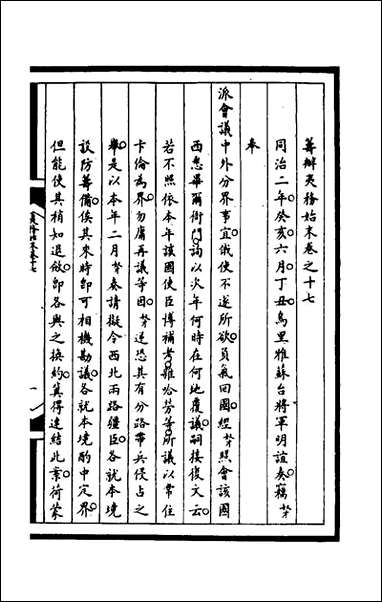 籌辦夷務始末卷之十七
同治二年癸亥六月丁丑烏里雅蘇台將軍明誼奏竊努才
奉
派會議中外分界事宜俄使不遂所欲負氣回國經努才照會該國
西悉畢爾衙門詢以次年何時在何地覆議嗣接復文云
若不照依本年該國使臣博補考雜哈芳等所議以常住
卡倫為界勿庸再議等因努才逆恐其有分路帶兵侵占之
舉是以本年二月努才奏請擬令西北兩路疆臣各就本境
設防籌備俟其來時即可相機勘議各就本境酌中定界
但能使其稍知退斂即各與之換約冀得速結此案荷蒙